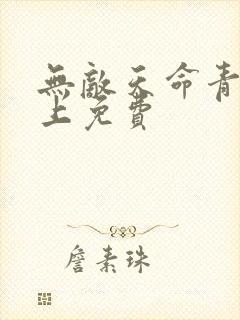 無敵天命青
上免費
詹素珠